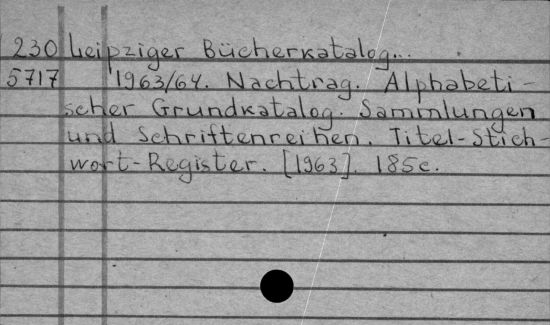 230 Leipziger Bücherkatalog...
5717 1963/64. Nachtrag. Alphabeti-
scher Grundkatalog. Sammlungen
und Schriftenreihen. Titel-Stich-
wort-Register. [1963]. 185c.